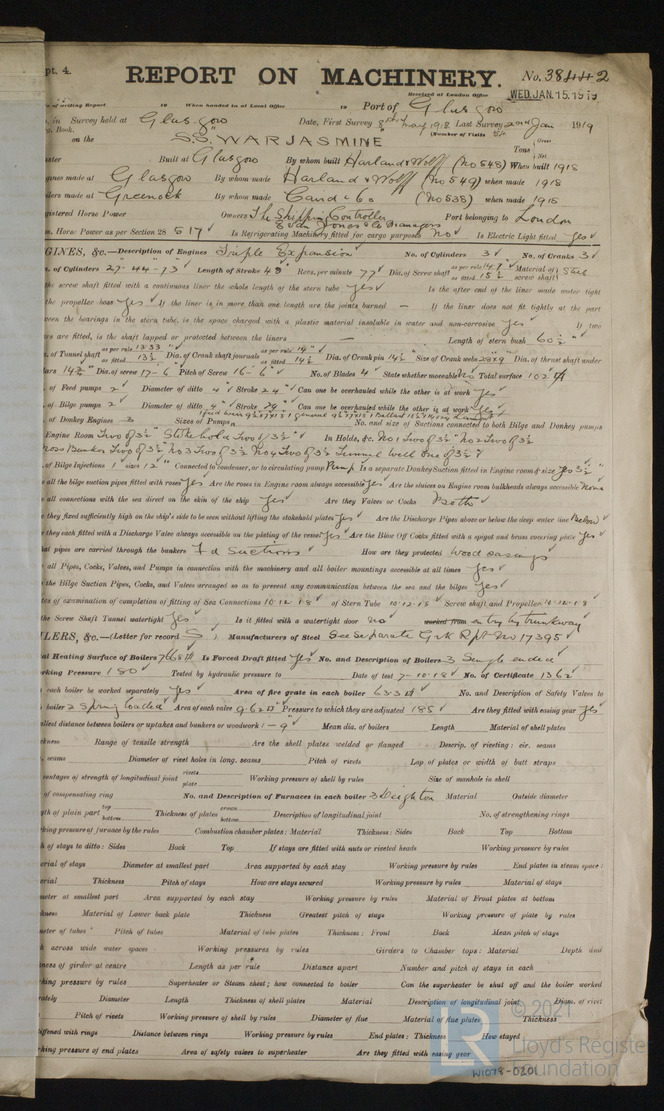 pt. 4.
REPORT ON MACHINERY. No. 38442
Received at London Office WED. JAN. 15. 1919
of writing Report 19 When handed in at Local Office 19 Port of Glasgow
in Survey held at Glasgow Date, First Survey 8th May 1918 Last Survey 2nd Jan 1919
Book. (Number of Visits 54
on the S.S. "WAR JASMINE Tons Gross Net
Built at Glasgow By whom built Harland & Wolff (No 548) When built 1918
gines made at Glasgow By whom made Harland & Wolff (No 549) when made 1918
ilers made at Greenock By whom made Caird & Co (No 538) when made 1918
gistered Horse Power Owners The Shipping Controller Port belonging to London
Evan Jones & Co Managers
m. Horse Power as per Section 28 517 Is Refrigerating Machinery fitted for cargo purposes No Is Electric Light fitted Yes
GINES, &c.—Description of Engines Triple Expansion No. of Cylinders 3 No. of Cranks 3
of Cylinders 27-44-73 Length of Stroke 48 Revs. per minute 77 Dia. of Screw shaft as per rule 14.9 as fitted 15½ Material of screw shaft Steel
the screw shaft fitted with a continuous liner the whole length of the stern tube Yes Is the after end of the liner made water tight
the propeller boss Yes If the liner is in more than one length are the joints burned — If the liner does not fit tightly at the part
ween the bearings in the stern tube, is the space charged with a plastic material insoluble in water and non-corrosive Yes If two
rs are fitted, is the shaft lapped or protected between the liners — Length of stern bush 60½"
of Tunnel shaft as per rule 13.33 as fitted 13½ Dia. of Crank shaft journals as per rule 14" as fitted 14½ Dia. of Crank pin 14½" Size of Crank webs 28x9 Dia. of thrust shaft under
lars 14½" Dia. of screw 17-6 Pitch of Screw 16-6 No. of Blades 4 State whether moveable No Total surface 102
of Feed pumps 2 Diameter of ditto 4 Stroke 24" Can one be overhauled while the other is at work Yes
of Bilge pumps 2 Diameter of ditto 4 Stroke 24" Can one be overhauled while the other is at work Yes
of Donkey Engines 3 Sizes of Pumps No. and size of Suctions connected to both Bilge and Donkey pumps
Engine Room Two of 3½" Stokehold Two of 3½" In Holds, &c. No 1 Two of 3½" No 2 Two of 3½
Cross Bunker Two of 3½" No 3 Two of 3½" No 4 Two of 3½" Tunnel Well One of 3½"
of Bilge Injections 1 size 12" Connected to condenser, or to circulating pump Pump Is a separate Donkey Suction fitted in Engine room & size Yes 3½"
all the bilge suction pipes fitted with roses Yes Are the roses in Engine room always accessible Yes Are the sluices on Engine room bulkheads always accessible None
all connections with the sea direct on the skin of the ship Yes Are they Valves or Cocks Both
they fixed sufficiently high on the ship's side to be seen without lifting the stokehold plates Yes Are the Discharge Pipes above or below the deep water line Below
they each fitted with a Discharge Valve always accessible on the plating of the vessel Yes Are the Blow Off Cocks fitted with a spigot and brass covering plate Yes
at pipes are carried through the bunkers F'd Suctions How are they protected Wood casings
all Pipes, Cocks, Valves, and Pumps in connection with the machinery and all boiler mountings accessible at all times Yes
the Bilge Suction Pipes, Cocks, and Valves arranged so as to prevent any communication between the sea and the bilges Yes
tes of examination of completion of fitting of Sea Connections 10-12-18 of Stern Tube 10-12-18 Screw shaft and Propeller 10-12-18
the Screw Shaft Tunnel watertight Yes Is it fitted with a watertight door no worked from entry by trunkway
ILERS, &c.—(Letter for record S) Manufacturers of Steel See Separate Grk Rpt No 17395
al Heating Surface of Boilers 7668 Is Forced Draft fitted Yes No. and Description of Boilers 3 Single ended
orking Pressure 180 Tested by hydraulic pressure to Date of test 7-10-18 No. of Certificate 1362
each boiler be worked separately Yes Area of fire grate in each boiler 63.3 No. and Description of Safety Valves to
boiler 2 Spring loaded Area of each valve 9.62 Pressure to which they are adjusted 185 Are they fitted with easing gear Yes
allest distance between boilers or uptakes and bunkers or woodwork 1-9" Mean dia. of boilers Length Material of shell plates
ckness Range of tensile strength Are the shell plates welded or flanged Descrip. of riveting: cir. seams
seams Diameter of rivet holes in long. seams Pitch of rivets Lap of plates or width of butt straps
centages of strength of longitudinal joint rivets plate Working pressure of shell by rules Size of manhole in shell
of compensating ring No. and Description of Furnaces in each boiler 3 Deighton Material Outside diameter
gth of plain part top bottom Thickness of plates crown bottom Description of longitudinal joint No. of strengthening rings
rking pressure of furnace by the rules Combustion chamber plates: Material Thickness: Sides Back Top Bottom
h of stays to ditto: Sides Back Top If stays are fitted with nuts or riveted heads Working pressure by rules
erial of stays Diameter at smallest part Area supported by each stay Working pressure by rules End plates in steam space:
erial Thickness Pitch of stays How are stays secured Working pressure by rules Material of stays
meter at smallest part Area supported by each stay Working pressure by rules Material of Front plates at bottom
kness Material of Lower back plate Thickness Greatest pitch of stays Working pressure of plate by rules
meter of tubes Pitch of tubes Material of tube plates Thickness: Front Back Mean pitch of stays
h across wide water spaces Working pressures by rules Girders to Chamber tops: Material Depth and
kness of girder at centre Length as per rule Distance apart Number and pitch of stays in each
rking pressure by rules Superheater or Steam chest; how connected to boiler Can the superheater be shut off and the boiler worked
rately Diameter Length Thickness of shell plates Material Description of longitudinal joint Diam. of rivet
Pitch of rivets Working pressure of shell by rules Diameter of flue Material of flue plates Thickness
iffened with rings Distance between rings Working pressure by rules End plates: Thickness How stayed
rking pressure of end plates Area of safety valves to superheater Are they fitted with easing gear
© 2021
Lloyd's Register
Foundation
W1078-0201